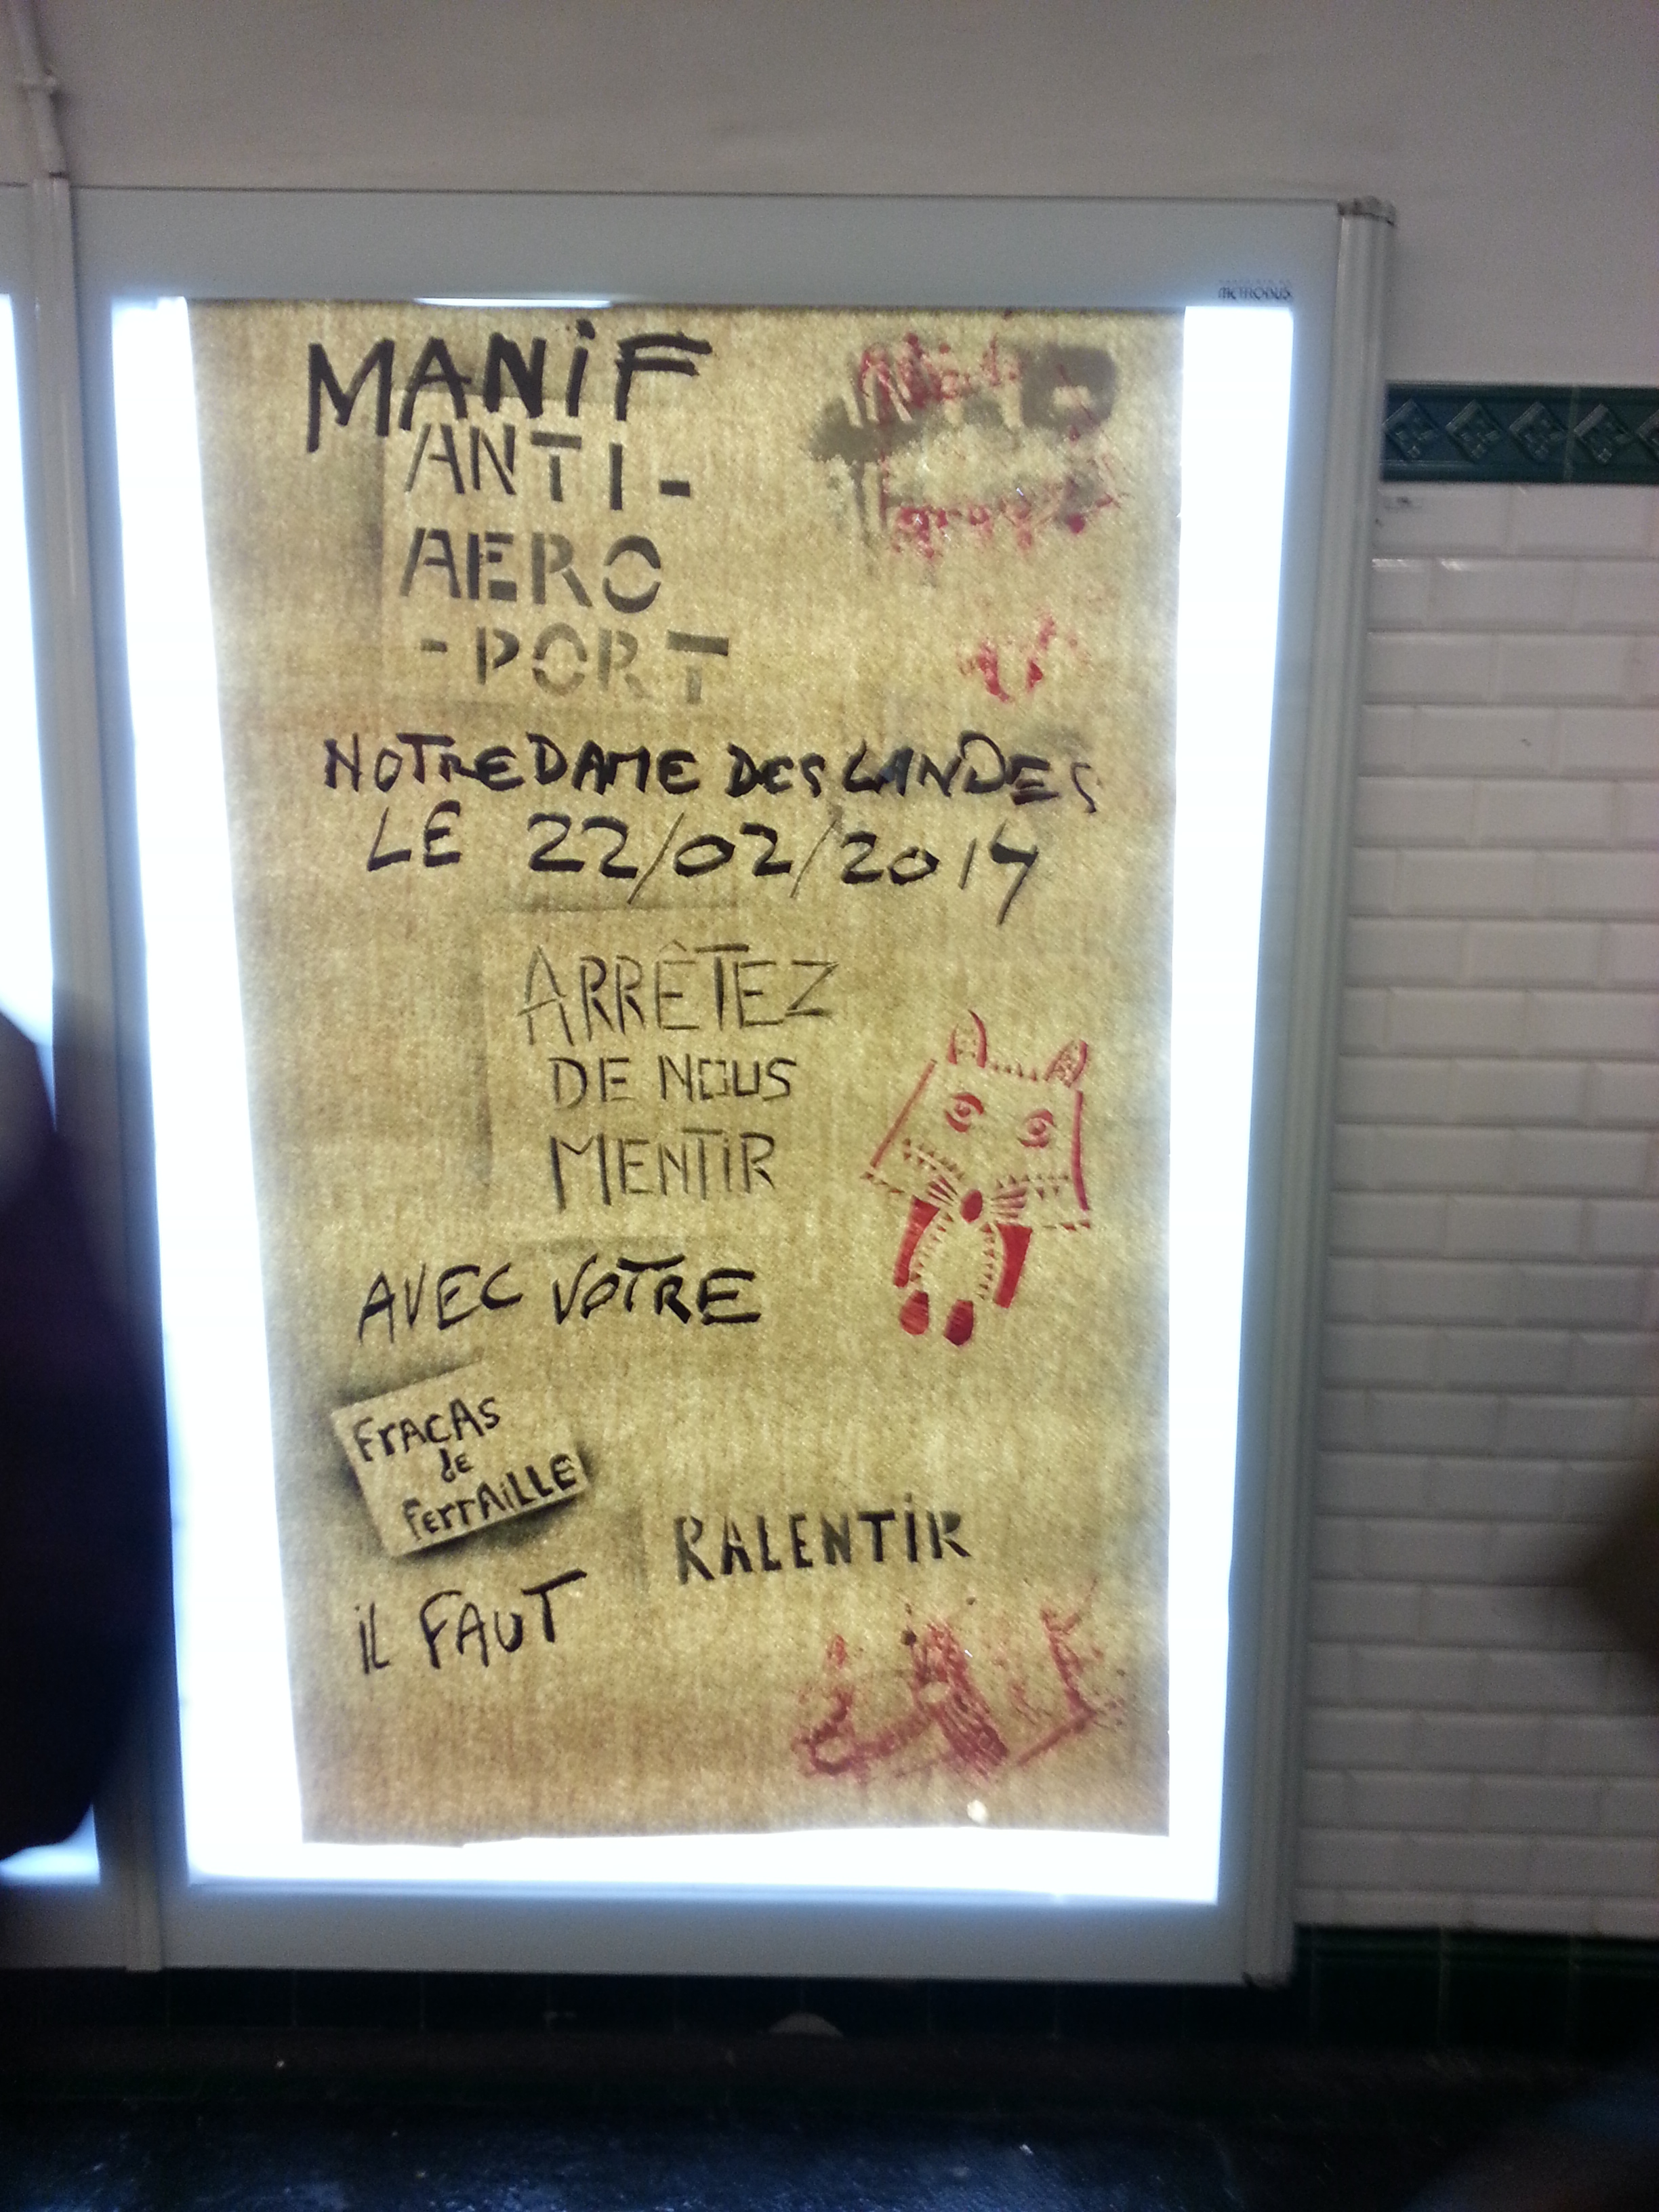 METROBUS
MANiF
ANTI-
AERO
-PORT
NOTRE DAME DES LANDES
LE 22/02/2014
ARRÊTEZ
DE NOUS
MENTiR
AVEC VOTRE
FrACAs
de
ferrAiLLE
iL FAUT
RALENTiR